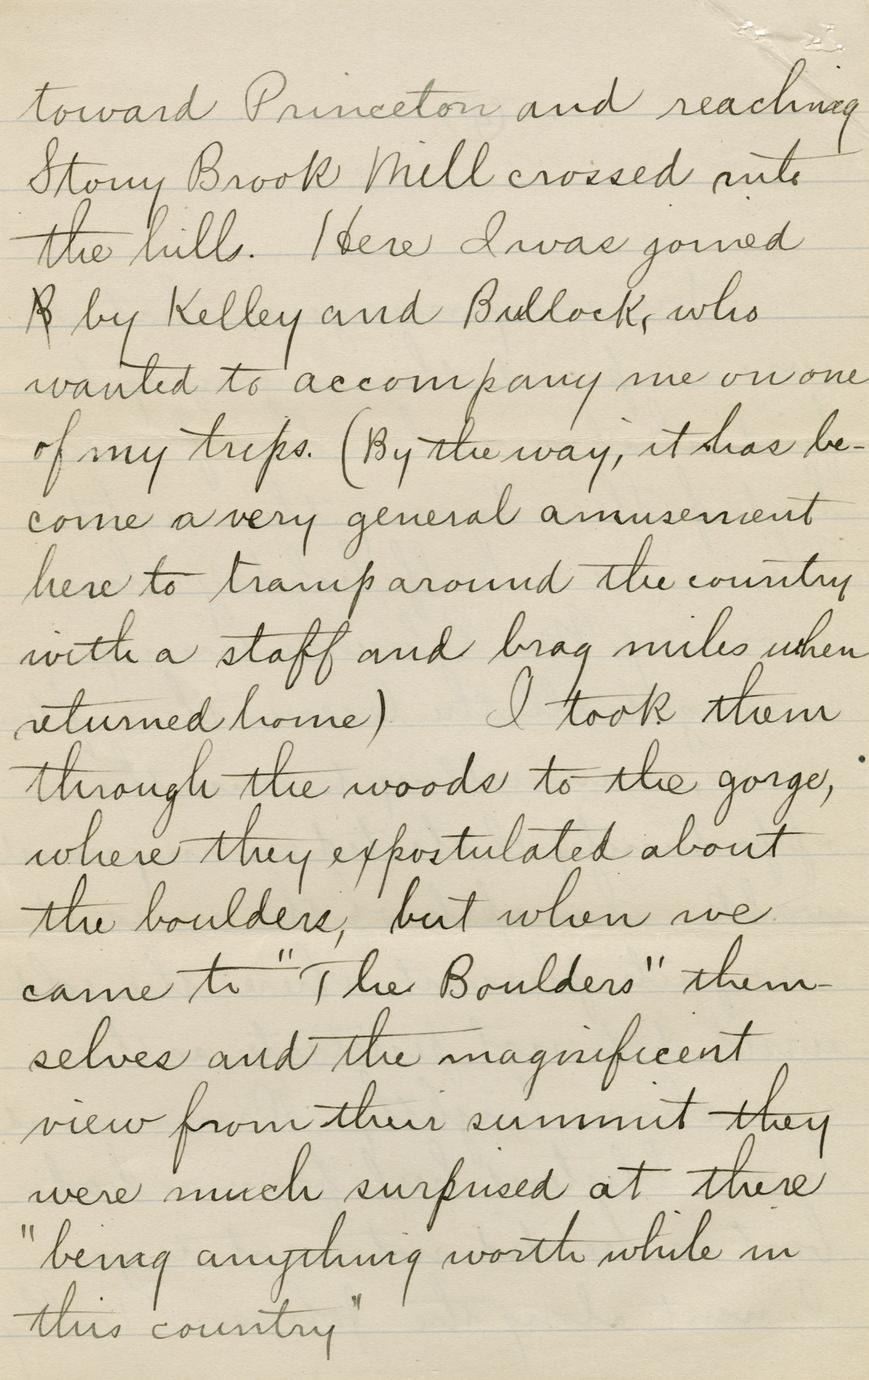 toward Princeton and reaching
Stony Brook Mill crossed into
the hills. Here I was joined
B by Kelley and Bullock, who
wanted to accompany me on one
of my trips. (By the way, it has be-
come a very general amusement
here to tramp around the country
with a staff and brag miles when
returned home) I took them
through the woods to the gorge,
where they expostulated about
the boulders, but when we
came to "The Boulders" them-
selves and the magnificent
view from their summit they
were much surprised at there
"being anything worth while in
this country"